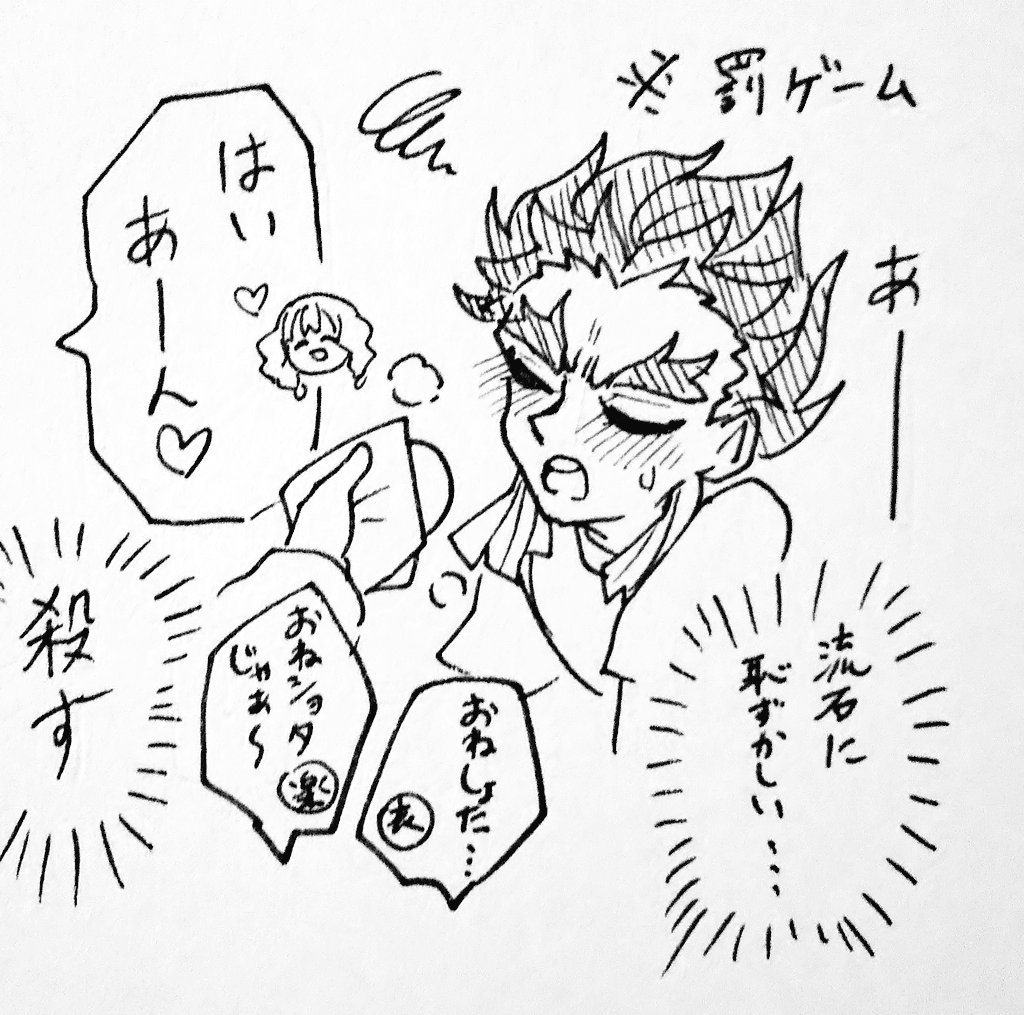 ※罰ゲーム
あー
はい
あーん♡
流石に
恥ずかしい…‥
おねしょた…
哀
おねショタ
じゃぁ〜
楽
殺す